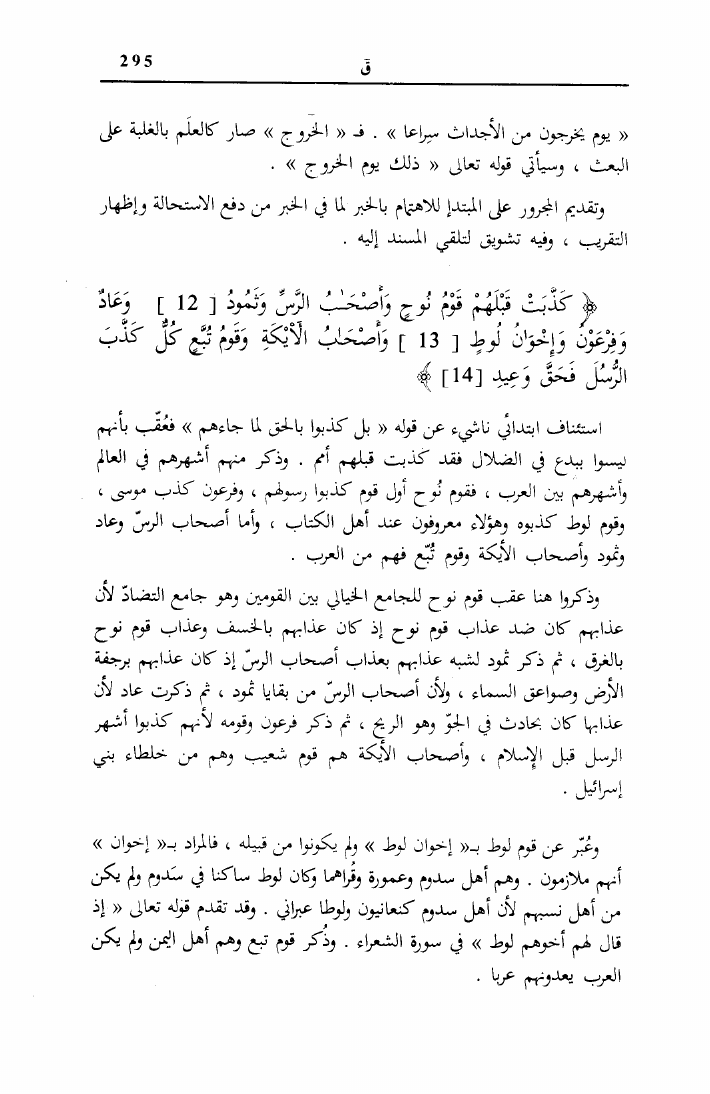 295
قٓ
« يوم يخرجون من الأجداث سِراعا » . فـ « الخروج » صار كالعلَم بالغلبة على
البعث ، وسيأتي قوله تعالى « ذلك يوم الخروج » .
وتقديم المجرور على المبتدإ للاهتمام بالخبر لما في الخبر من دفع الاستحالة وإظهار
التقريب ، وفيه تشويق لتلقي المسند إليه .
﴿ كَذَّبَتْ قَبْلَهُمْ قَوْمُ نُوحٍ وَأَصْحَـٰبُ الرَّسِّ وَثَمُودُ [ 12 ] وَعَادٌ
وَفِرْعَوْنُ وَإِخْوَانُ لُوطٍ [ 13 ] وَأَصْحَـٰبُ الْأَيْكَةِ وَقَوْمُ تُبَّعٍ كُلٌّ كَذَّبَ
الرُّسُلَ فَحَقَّ وَعِيدِ [14] ﴾
استئناف ابتدائي ناشيء عن قوله « بل كذبوا بالحق لما جاءهم » فعُقّب بأنهم
ليسوا ببدع في الضلال فقد كذبت قبلهم أمم . وذكر منهم أشهرهم في العالم
وأشهرهم بين العرب ، فقوم نُوح أول قوم كذبوا رسولهم ، وفرعون كذب موسى ،
وقوم لوط كذبوه وهؤلاء معروفون عند أهل الكتاب ، وأما أصحاب الرسّ وعاد
وثمود وأصحاب الأيكة وقوم تُبّع فهم من العرب .
وذكروا هنا عقب قوم نوح للجامع الخيالي بين القومين وهو جامع التضادّ لأن
عذابهم كان ضد عذاب قوم نوح إذ كان عذابهم بالخسف وعذاب قوم نوح
بالغرق ، ثم ذكر ثمود لشبه عذابهم بعذاب أصحاب الرسّ إذ كان عذابهم برجفة
الأرض وصواعق السماء ، ولأن أصحاب الرسّ من بقايا ثمود ، ثم ذكرت عاد لأن
عذابها كان بحادث في الجوّ وهو الريح ، ثم ذكر فرعون وقومه لأنهم كذبوا أشهر
الرسل قبل الإسلام ، وأصحاب الأيكة هم قوم شعيب وهم من خلطاء بني
إسرائيل .
وعُبّر عن قوم لوط بـ« إخوان لوط » ولم يكونوا من قبيله ، فالمراد بـ« إخوان »
أنهم ملازمون . وهم أهل سدوم وعمورة وقُراهما وكان لوط ساكنا في سَدوم ولم يكن
من أهل نسبهم لأن أهل سدوم كنعانيون ولوطا عبراني . وقد تقدم قوله تعالى « إذ
قال لهم أخوهم لوط » في سورة الشعراء . وذُكر قوم تبع وهم أهل اليمن ولم يكن
العرب يعدونهم عربا .